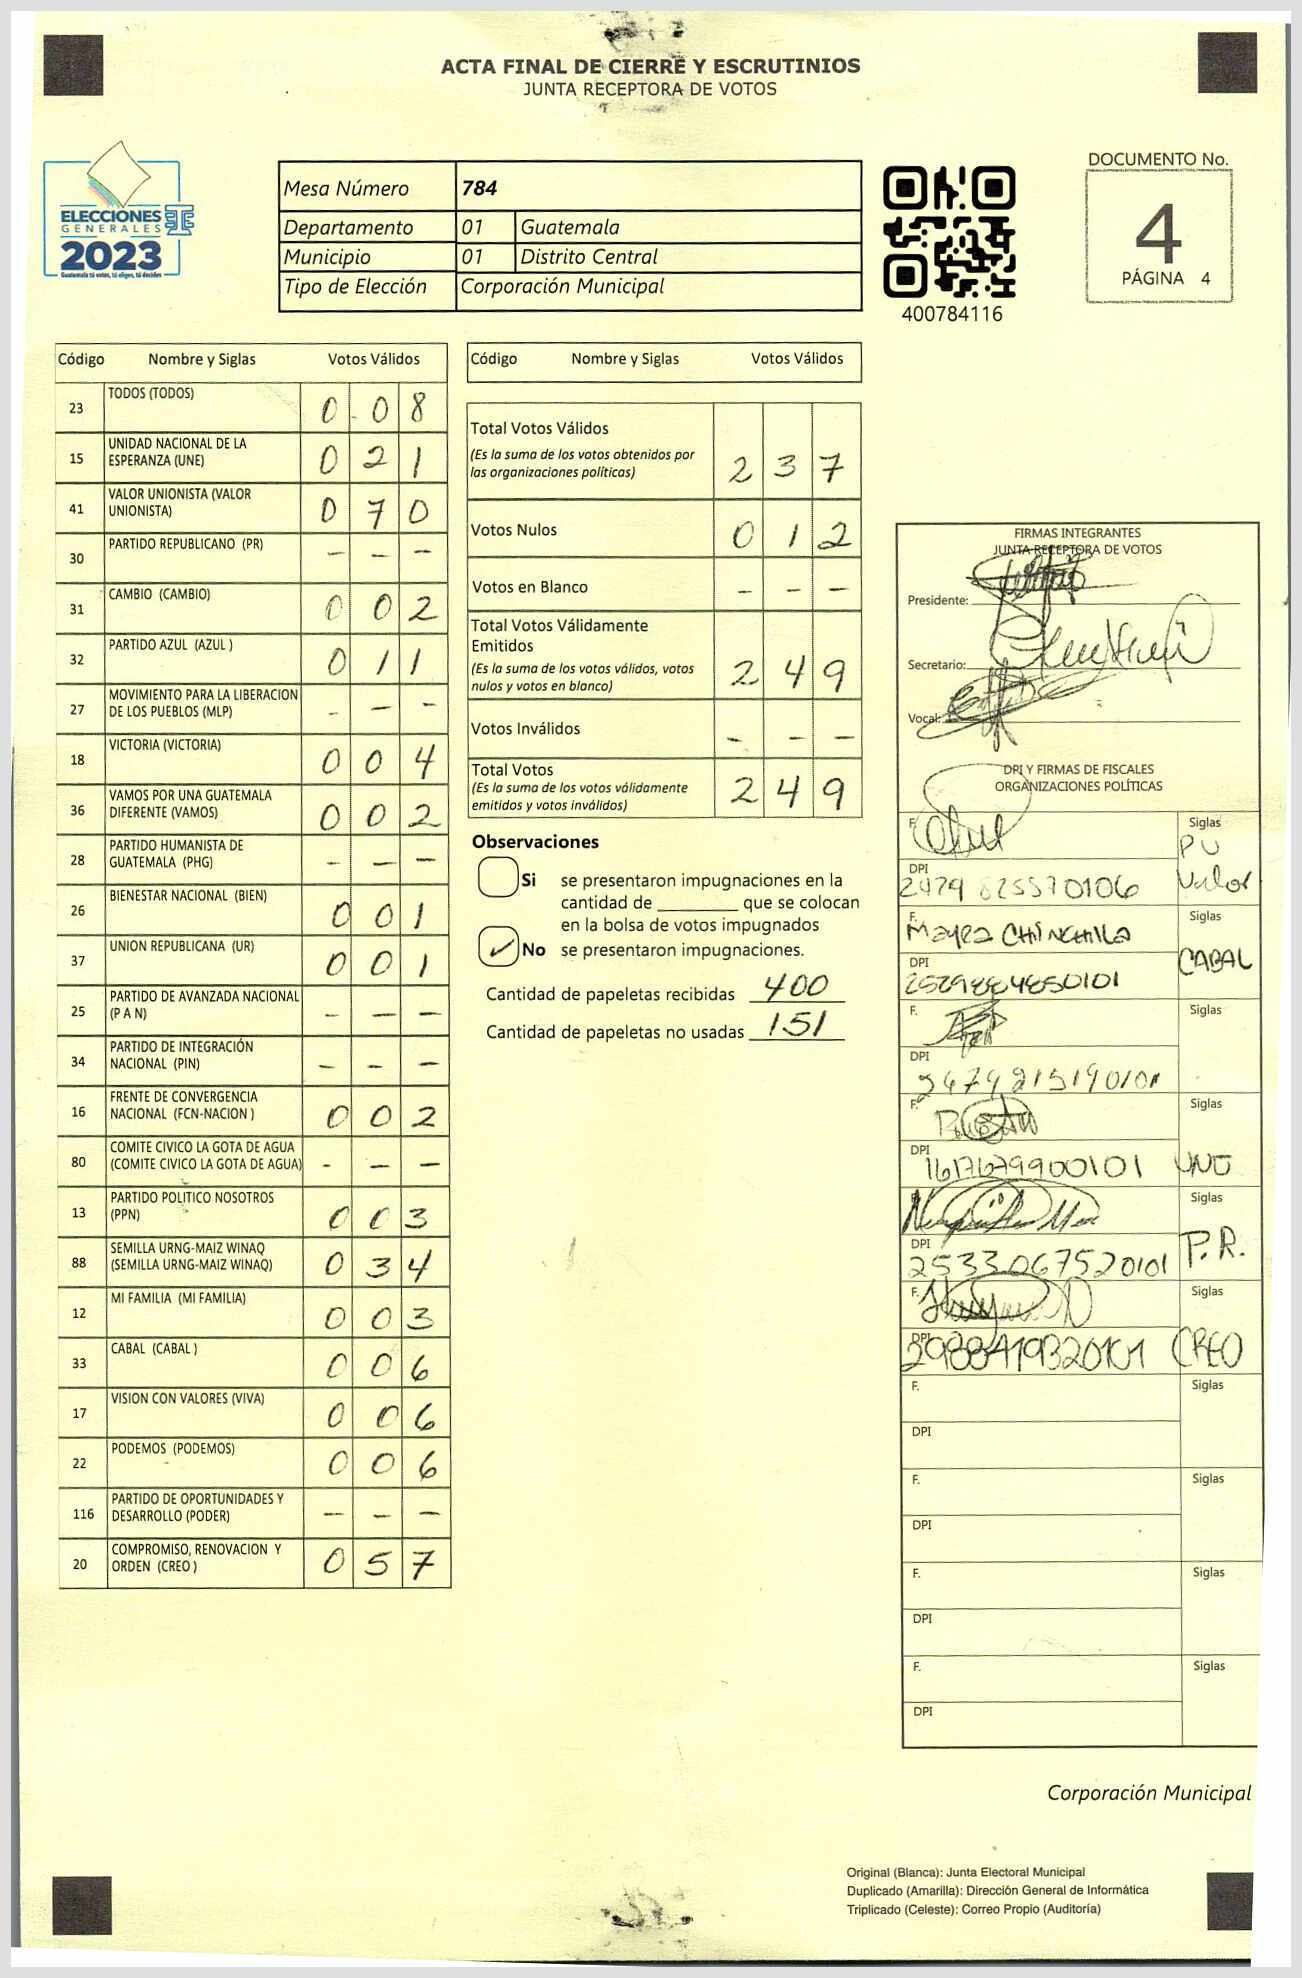 ACTA FINAL DE CIERRE Y ESCRUTINIOS
JUNTA RECEPTORA DE VOTOS
ELECCIONES
GENERALES
2023
Guatemala tú votas, tú eliges, tú decides
Mesa Número 784
Departamento 01 Guatemala
Municipio 01 Distrito Central
Tipo de Elección Corporación Municipal
400784116
DOCUMENTO No.
4
PÁGINA 4
Código Nombre y Siglas Votos Válidos
23 TODOS (TODOS) 0 0 8
15 UNIDAD NACIONAL DE LA ESPERANZA (UNE) 0 2 1
41 VALOR UNIONISTA (VALOR UNIONISTA) 0 7 0
30 PARTIDO REPUBLICANO (PR) - - -
31 CAMBIO (CAMBIO) 0 0 2
32 PARTIDO AZUL (AZUL ) 0 1 1
27 MOVIMIENTO PARA LA LIBERACION DE LOS PUEBLOS (MLP) - - -
18 VICTORIA (VICTORIA) 0 0 4
36 VAMOS POR UNA GUATEMALA DIFERENTE (VAMOS) 0 0 2
28 PARTIDO HUMANISTA DE GUATEMALA (PHG) - - -
26 BIENESTAR NACIONAL (BIEN) 0 0 1
37 UNION REPUBLICANA (UR) 0 0 1
25 PARTIDO DE AVANZADA NACIONAL (P A N) - - -
34 PARTIDO DE INTEGRACIÓN NACIONAL (PIN) - - -
16 FRENTE DE CONVERGENCIA NACIONAL (FCN-NACION ) 0 0 2
80 COMITE CIVICO LA GOTA DE AGUA (COMITE CIVICO LA GOTA DE AGUA) - - -
13 PARTIDO POLITICO NOSOTROS (PPN) 0 0 3
88 SEMILLA URNG-MAIZ WINAQ (SEMILLA URNG-MAIZ WINAQ) 0 3 4
12 MI FAMILIA (MI FAMILIA) 0 0 3
33 CABAL (CABAL ) 0 0 6
17 VISION CON VALORES (VIVA) 0 0 6
22 PODEMOS (PODEMOS) 0 0 6
116 PARTIDO DE OPORTUNIDADES Y DESARROLLO (PODER) - - -
20 COMPROMISO, RENOVACION Y ORDEN (CREO ) 0 5 7
Código Nombre y Siglas Votos Válidos
Total Votos Válidos 2 3 7
(Es la suma de los votos obtenidos por
las organizaciones políticas)
Votos Nulos 0 1 2
Votos en Blanco - - -
Total Votos Válidamente
Emitidos 2 4 9
(Es la suma de los votos válidos, votos
nulos y votos en blanco)
Votos Inválidos - - -
Total Votos 2 4 9
(Es la suma de los votos válidamente
emitidos y votos inválidos)
Observaciones
Si se presentaron impugnaciones en la
cantidad de ________ que se colocan
en la bolsa de votos impugnados
No se presentaron impugnaciones.
Cantidad de papeletas recibidas 400
Cantidad de papeletas no usadas 151
FIRMAS INTEGRANTES
JUNTA RECEPTORA DE VOTOS
Presidente:
Secretario:
Vocal:
DPI Y FIRMAS DE FISCALES
ORGANIZACIONES POLÍTICAS
F. Siglas
PU
Valor
DPI
F. Mayra CHINCHILLA Siglas
CABAL
DPI
F. Siglas
DPI
F. Siglas
DPI
F. Siglas
P.R.
DPI 2533067520101
F. Siglas
CREO
DPI
F. Siglas
DPI
F. Siglas
DPI
F. Siglas
DPI
F. Siglas
DPI
Corporación Municipal
Original (Blanca): Junta Electoral Municipal
Duplicado (Amarilla): Dirección General de Informática
Triplicado (Celeste): Correo Propio (Auditoría)